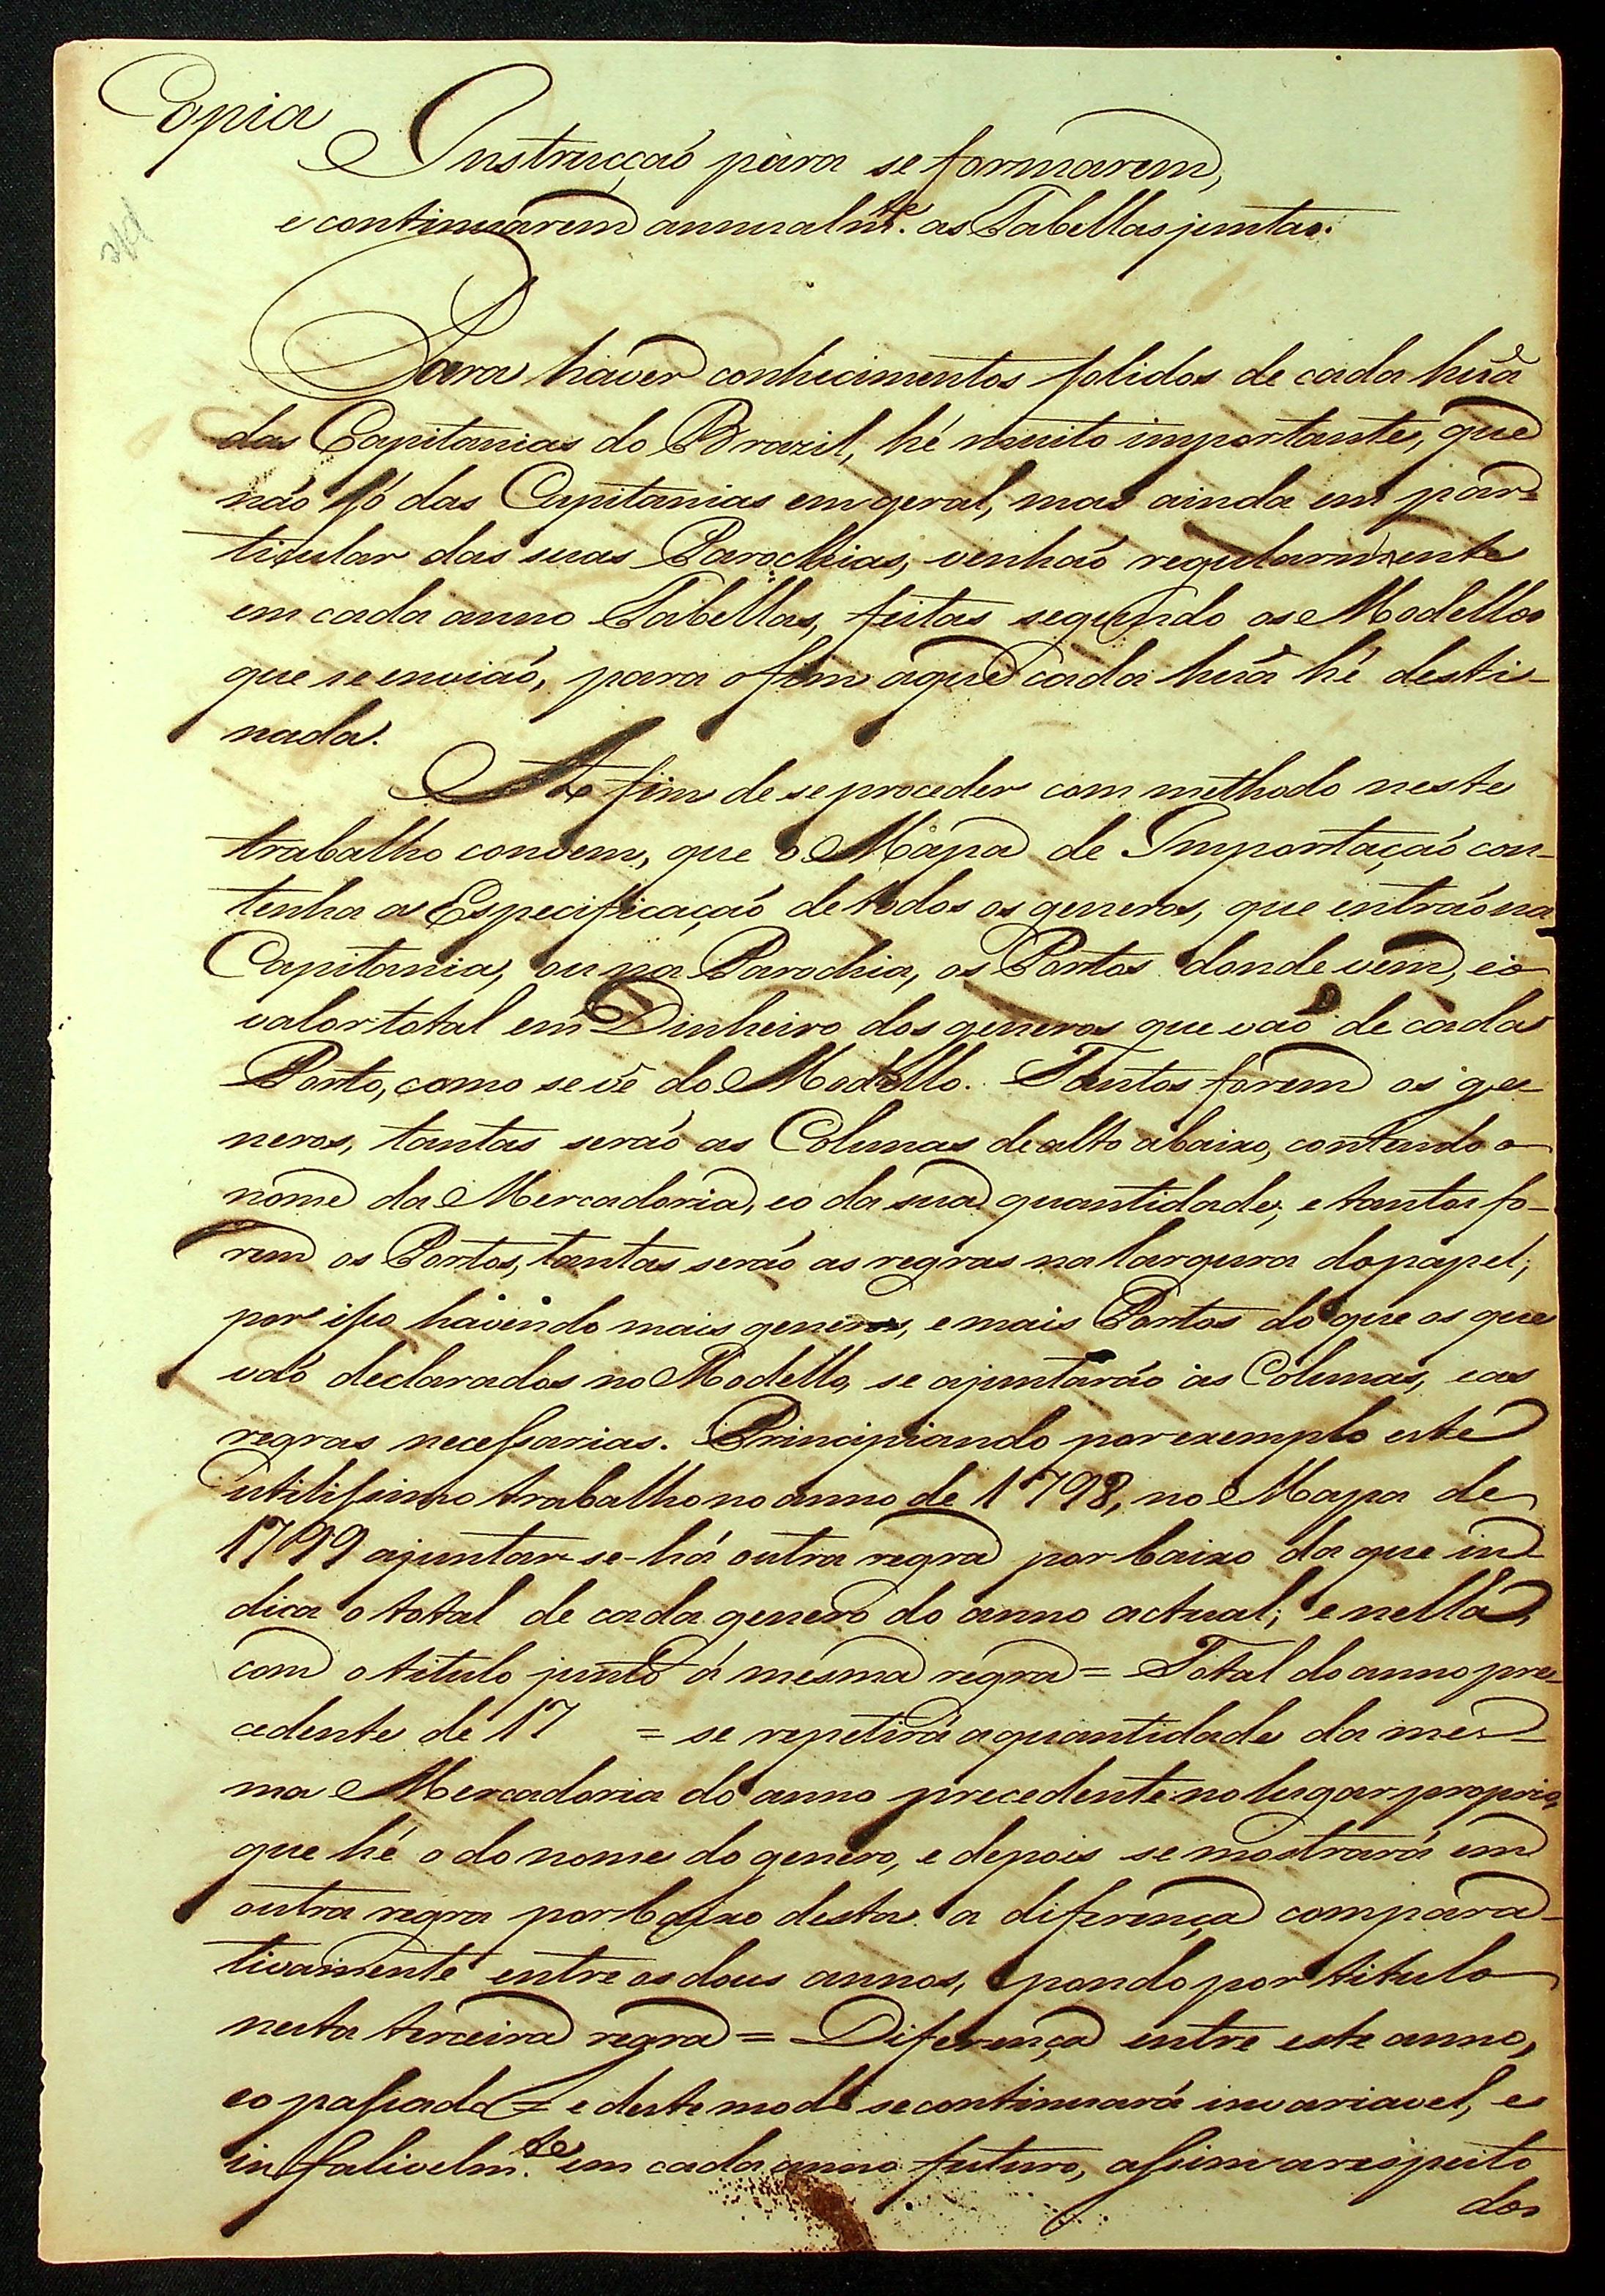 Copia
Instrucçaõ para se formarem,
e continuarem annualm.te as Tabellas juntas.
Para haver conhecimentos solidos de cada huã
das Capitanias do Brazil, hé muito importante, que
não só das Capitanias em geral, mas ainda em par=
ticular das suas Parochias, venhaõ regularmente
em cada anno Tabellas, feitas segundo os Modellos
que se enviaõ, para o fim aque cada huã hé desti-
nada.
A fim de se proceder com methodo neste
trabalho convem, que o Mapa de Importaçaõ con-
tenha a Especificaçaõ de todos os generos, que entraõ na
Capitania, ou na Parochia, os Portos donde vem, e o
valor total em Dinheiro dos generos que vaõ de cada
Porto, como se vê do Modello. Tantos forem os ge-
neros, tantas seráõ as Colunas de alto abaixo, contendo o
nome da Mercadoria, eo da sua quantidade, e tantos fo-
rem os Portos, tantas seráõ as regras na largura do papel;
por isso havendo mais generos, e mais Portos do que os que
vaõ declarados no Modello, se ajuntaráõ as Colunas, e as
regras necessarias. Principiando por exemplo este
utilissimo trabalho no anno de 1798, no Mapa de
1799 ajuntar-se-há outra regra por baixo da que in-
dica o total de cada genero do anno actual; e nella,
com o titulo junto á mesma regra = Total do anno pre-
cedente de 17 = se repetirá a quantidade da mes-
ma Mercadoria do anno precedente no lugar proprio,
que hé o do nome do genero, e depois se mostrará em
outra regra por baixo desta a diferença compara-
tivamente entre os dous annos, pondo por titulo
nesta terceira regra = Diferença entre este anno,
eo passado = e deste modo se continuará invariavel, e
infalivelm.te em cada anno futuro, assim a respeito
dos